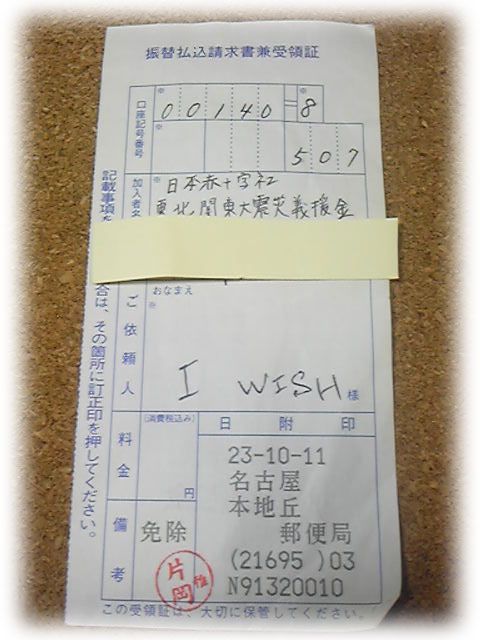 振替払込請求書兼受領証
口座記号番号
※ 00140-※8
※ 507
加入者名
※ 日本赤十字社
東北関東大震災義援金
おなまえ
※
ご依頼人
I WISH 様
料金
(消費税込み)
円
備考
免除
日附印
23-10-11
名古屋
本地丘
郵便局
(21695 )03
N91320010
片岡
記載事項を
合は、その箇所に訂正印を押してください。
この受領証は、大切に保管してください。